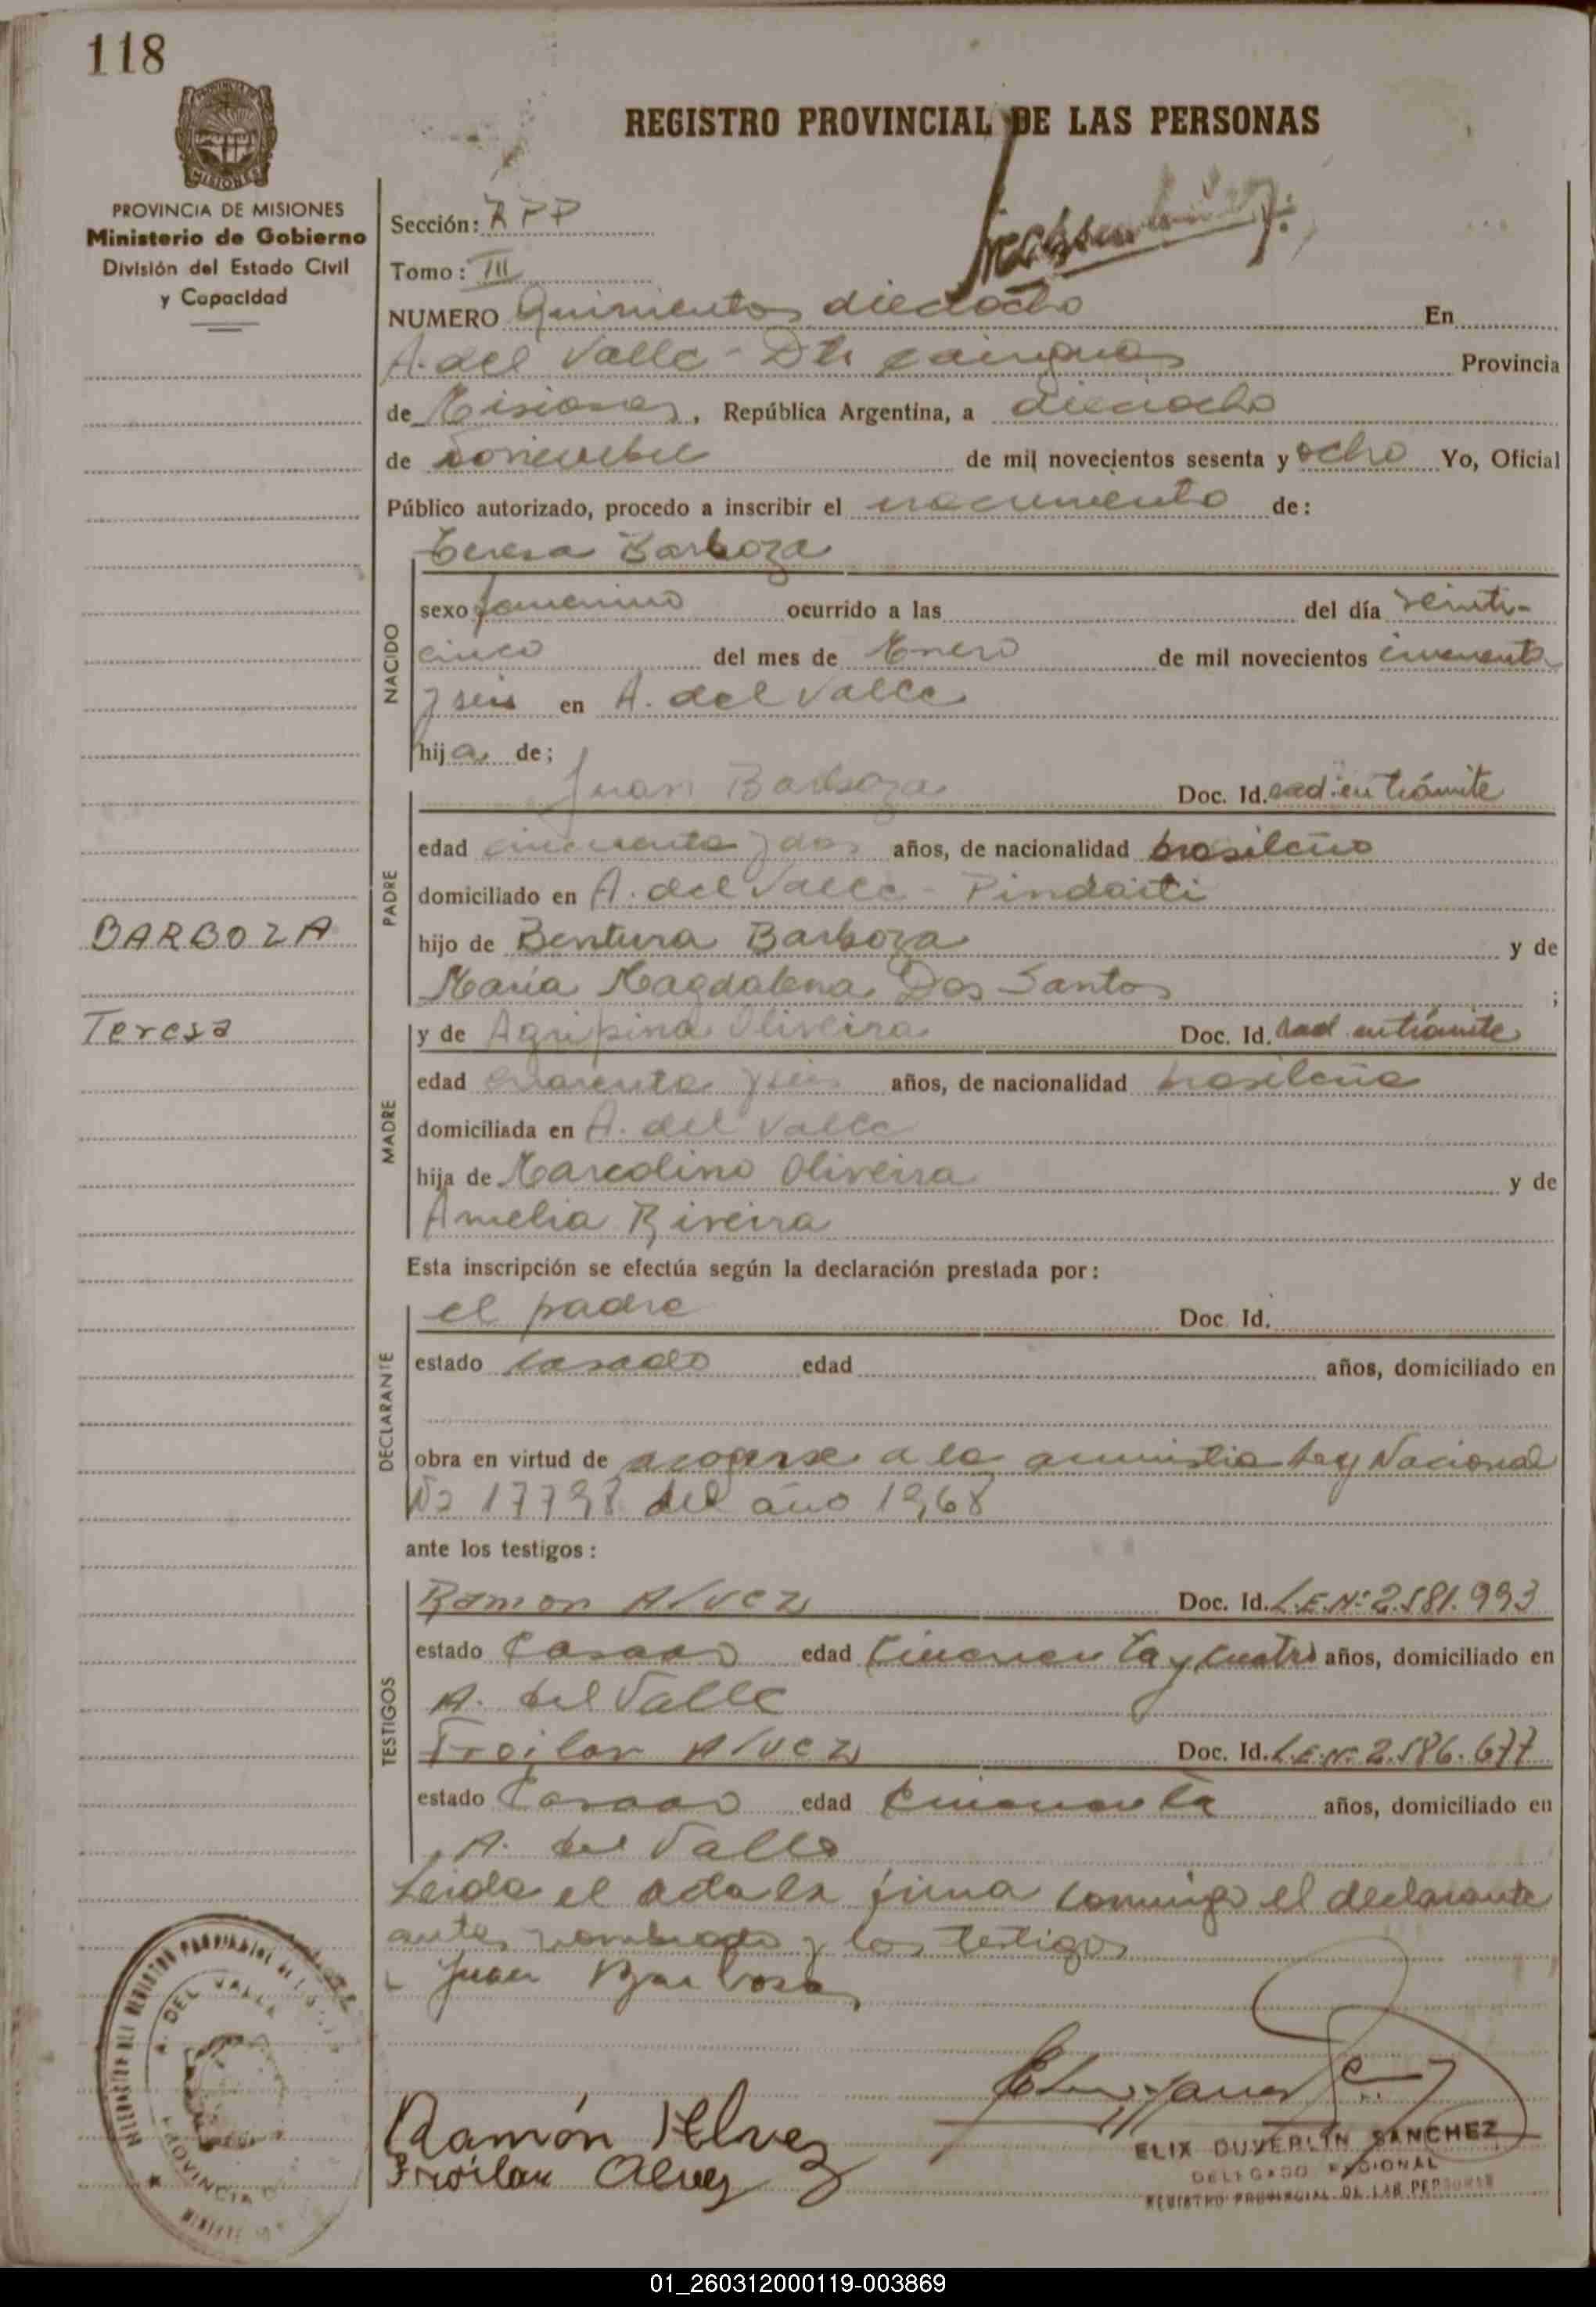 118
REGISTRO PROVINCIAL DE LAS PERSONAS
PROVINCIA DE MISIONES
Ministerio de Gobierno
División del Estado Civil
y Capacidad
Sección: RPP
Tomo: III
NUMERO Quinientos dieciocho En
A. del Valle - Dto Cainguas Provincia
de Misiones, República Argentina, a dieciocho
de Noviembre de mil novecientos sesenta y ocho Yo, Oficial
Público autorizado, procedo a inscribir el nacimiento de:
Teresa Barboza
NACIDO
sexo femenino ocurrido a las del día veinti-
cinco del mes de Enero de mil novecientos cincuenta
y seis en A. del Valle
hija de;
PADRE
Juan Barboza Doc. Id. rad. en trámite
edad cincuenta y dos años, de nacionalidad brasileño
domiciliado en A. del Valle - Pindaiti
BARBOZA
hijo de Bentura Barboza y de
María Magdalena Dos Santos ;
Teresa
y de Agripina Oliveira Doc. Id. rad. en trámite
MADRE
edad cuarenta y seis años, de nacionalidad brasileña
domiciliada en A. del Valle
hija de Marcolino Oliveira y de
Amelia Riveira
Esta inscripción se efectúa según la declaración prestada por:
DECLARANTE
el padre Doc. Id.
estado casado edad años, domiciliado en
obra en virtud de acogerse a la amnistia Ley Nacional
No 17798 del año 1968
ante los testigos:
TESTIGOS
Ramon Alvez Doc. Id. L.E.Nº 2.581.993
estado Casado edad Cincuenta y cuatro años, domiciliado en
A. del Valle
Froilan Alvez Doc. Id. L.E.Nº 2.586.677
estado Casado edad Cincuenta años, domiciliado en
A. del Valle
Leida el acta la firma conmigo el declarante
antes nombrado y los testigos
Juan Barboza
Ramón Alvez
Froilan Alvez
ELIX DUVERLIN SANCHEZ
DELEGADO REGIONAL
REGISTRO PROVINCIAL DE LAS PERSONAS
A. DEL VALLE
PROVINCIA
01_260312000119-003869